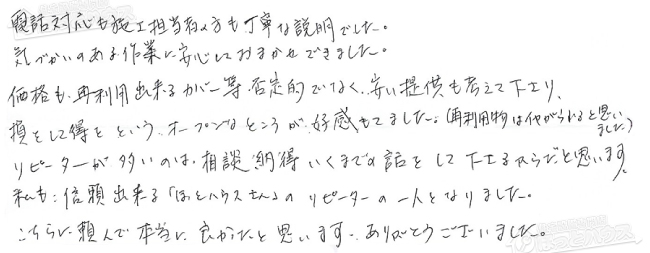 電話対応も施工担当者の方も丁寧な説明でした。
気づかいのある作業に安心しておまかせできました。
価格も、再利用出来るカバー等、否定的でなく、安い提供も考えて下さり、
損をして得をという、オープンなところが、好感もてました。(再利用物はイヤがられると思いました)
リピーターが多いのは、相談、納得いくまでの話をして下さるからだと思います。
私も、信頼出来る「ほっとハウスさん」のリピーターの一人となりました。
こちらに頼んで本当に良かったと思います。ありがとうございました。